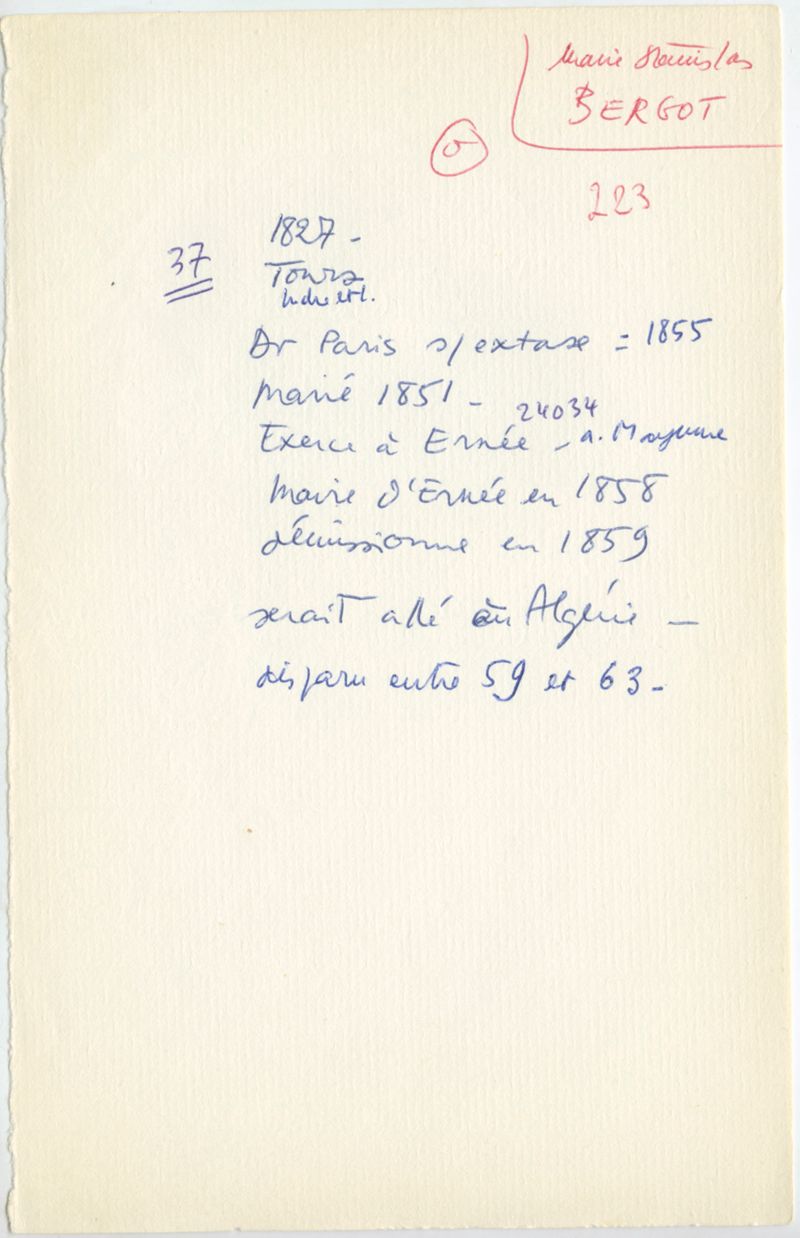 Marie Stanislas
BERGOT
σ
223
1827 -
37
Tours
Indre et L.
Dr Paris s/ extase = 1855
Marié 1851 -
24034
Exerce à Ernée - a. Mayenne
Maire d'Ernée en 1858
démissionne en 1859
serait allé en Algérie -
disparu entre 59 et 63 -